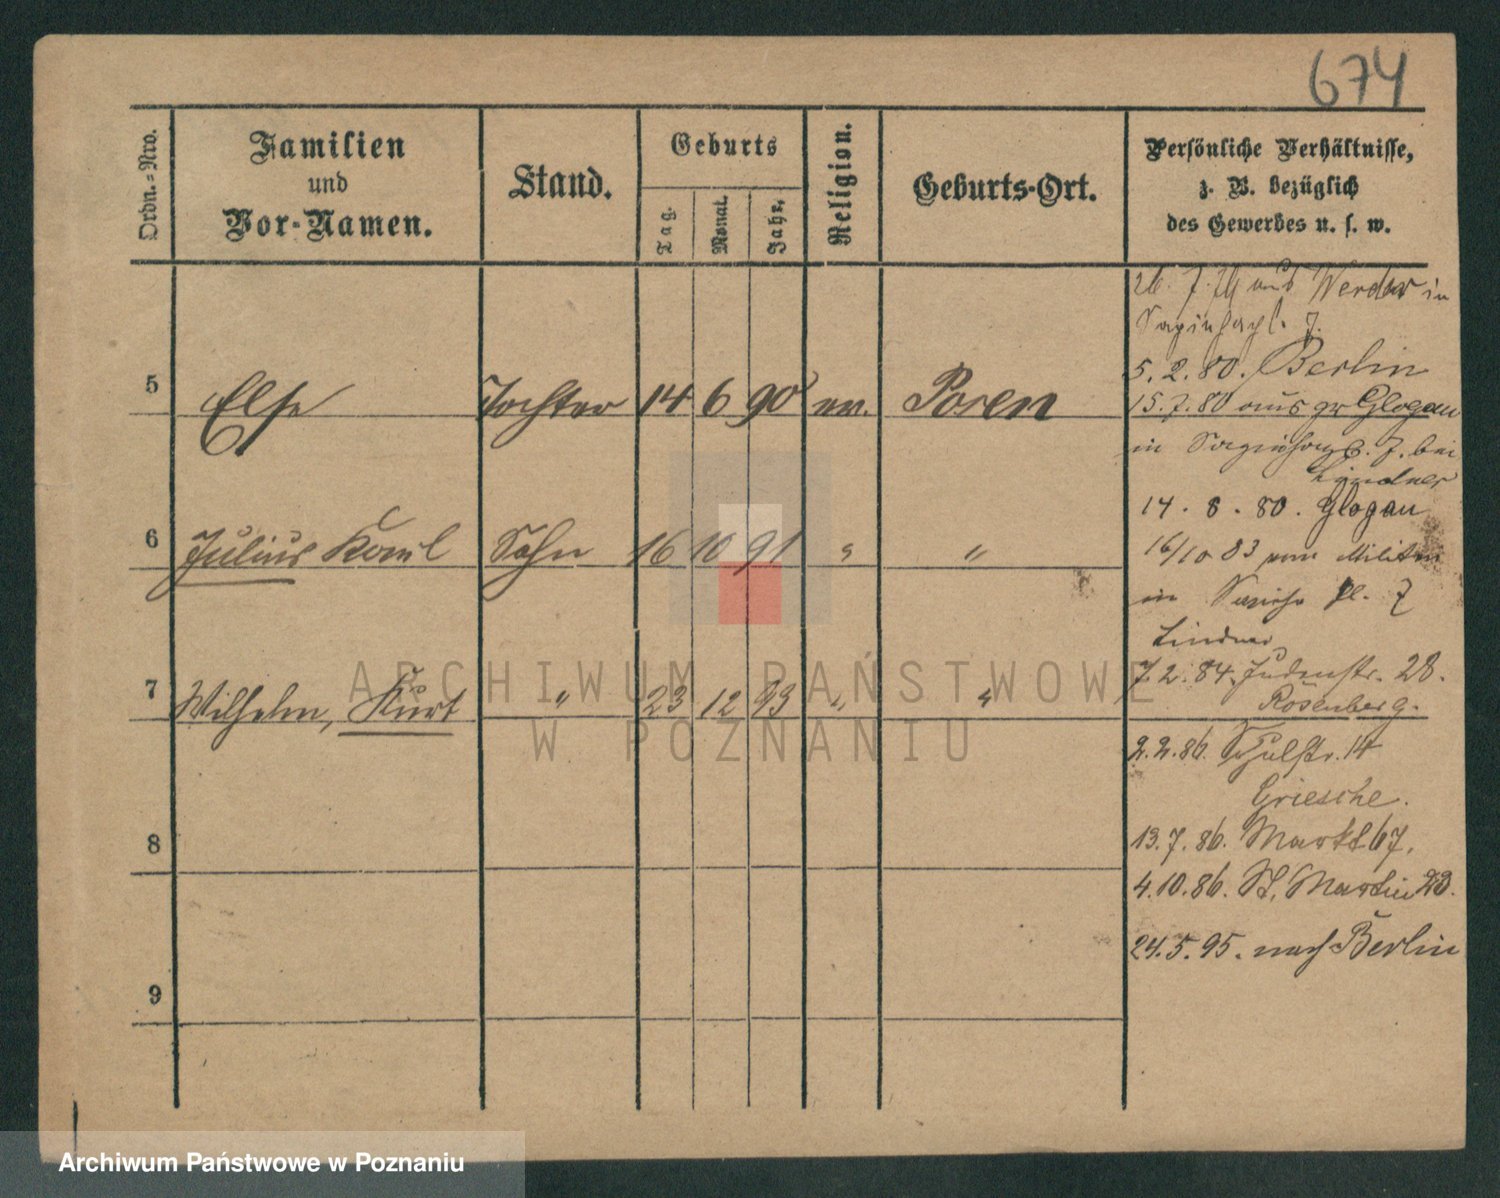 674
Ordn.-Nro.
Familien
und
Vor-Namen.
Stand.
Geburts
Tag.
Monat.
Jahr.
Religion.
Geburts-Ort.
Persönliche Verhältnisse,
z. B. bezüglich
des Gewerbes u. s. w.
5 Else Tochter 14 6 90 ev. Posen
6 Julius Karl Sohn 16 10 91 " "
7 Wilhelm, Kurt " 23 12 93 " "
8
9
26. 7. 79 aus Werder in
5. 2. 80. Berlin
15. 7. 80 aus gr Glogau
in 7. bei
Lindner
14. 8. 80. Glogau
16/10 83 vom Militär
in 7
Lindner
7. 2. 84. Judenstr. 28.
Rosenberg.
2. 2. 86. 14
Griesche.
13. 7. 86. Markt 67.
4. 10. 86. St. Martin 23.
24. 5. 95. nach Berlin
ARCHIWUM PAŃSTWOWE
W POZNANIU
Archiwum Państwowe w Poznaniu